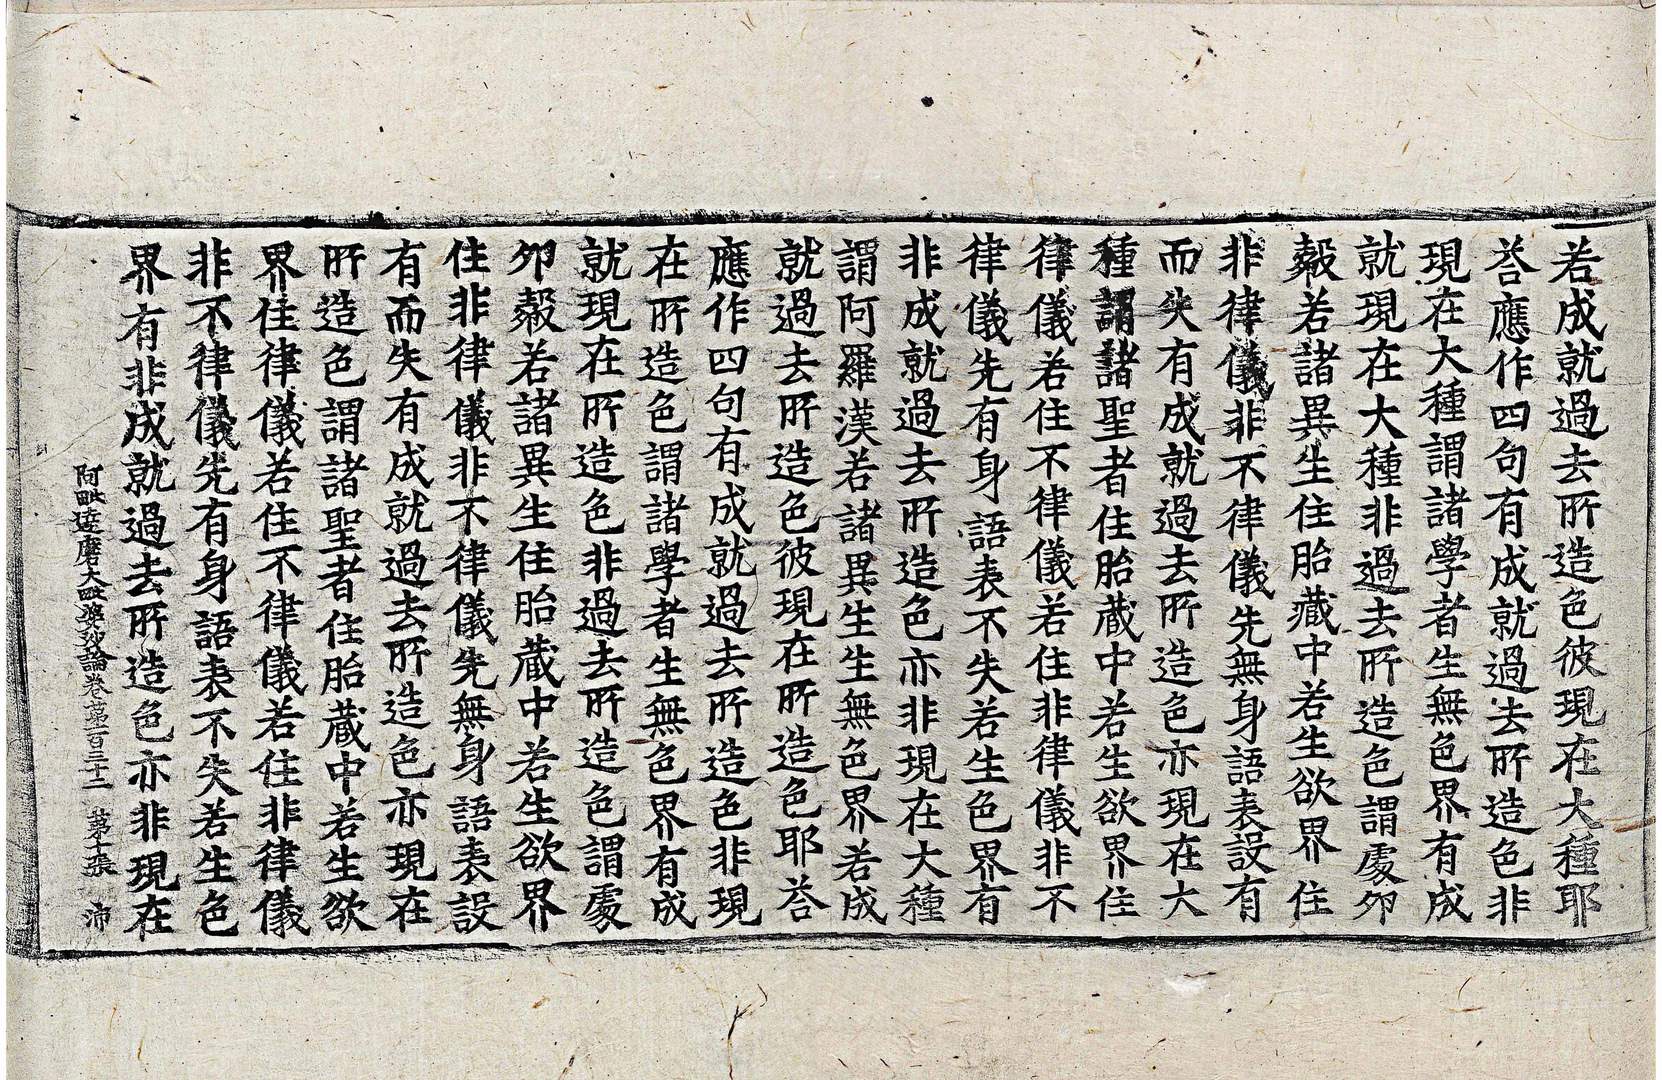 若成就過去所造色彼現在大種耶
荅應作四句有成就過去所造色非
現在大種謂諸學者生無色界有成
就現在大種非過去所造色謂處夘
㲉若諸異生住胎藏中若生欲界住
非律儀非不律儀先無身語表設有
而失有成就過去所造色亦現在大
種謂諸聖者住胎藏中若生欲界住
律儀若住不律儀若住非律儀非不
律儀先有身語表不失若生色界有
非成就過去所造色亦非現在大種
謂阿羅漢若諸異生生無色界若成
就過去所造色彼現在所造色耶荅
應作四句有成就過去所造色非現
在所造色謂諸學者生無色界有成
就現在所造色非過去所造色謂處
夘㲉若諸異生住胎藏中若生欲界
住非律儀非不律儀先無身語表設
有而失有成就過去所造色亦現在
所造色謂諸聖者住胎藏中若生欲
界住律儀若住不律儀若住非律儀
非不律儀先有身語表不失若生色
界有非成就過去所造色亦非現在
阿毗達磨大毗婆沙論卷苐一百三十二 苐十張 沛